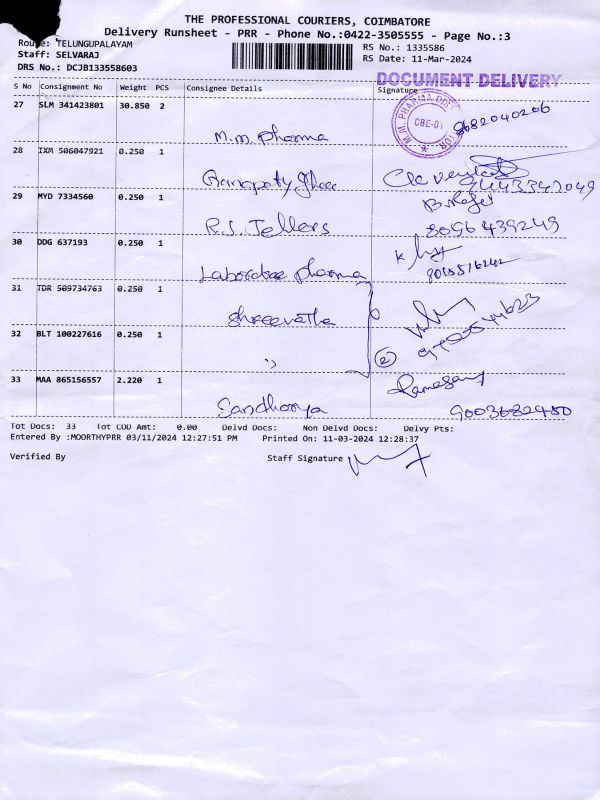 THE PROFESSIONAL COURIERS, COIMBATORE
Delivery Runsheet - PRR - Phone No.:0422-3505555 - Page No.:3
Route: TELUNGUPALAYAM
RS No.: 1335586
Staff: SELVARAJ
RS Date: 11-Mar-2024
DRS No.: DCJB133558603
DOCUMENT DELIVERY
S No Consignment No Weight PCS Consignee Details Signature
27 SLM 341423801 30.850 2
M.M. PHARMA CBE-01
9682040206
M.M. Pharma
28 IXM 506047921 0.250 1
Ganapaty
29 MYD 7334560 0.250 1
R.S. Tellers
8096439249
30 DDG 637193 0.250 1
Pharma
31 TDR 509734763 0.250 1
Shreevatha
32 BLT 100227616 0.250 1
"
②
33 MAA 865156557 2.220 1
Sandhoorya
9003682450
Tot Docs: 33 Tot COD Amt: 0.00 Delvd Docs: Non Delvd Docs: Delvy Pts:
Entered By :MOORTHYPRR 03/11/2024 12:27:51 PM Printed On: 11-03-2024 12:28:37
Verified By Staff Signature